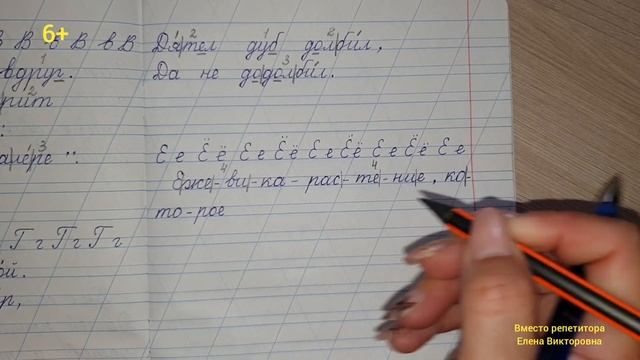 6+
в В в В в В Дятел дуб долбил,
вдруг. Да не додолбил.
рит
:
:
Е е Ё ё Е е Ё ё Е е Ё ё Е е Ё ё Е е
Еже-ви-ка - рас-те-ние, ко-
то-рое
Г г Г г Г г
ой.
р,
Вместо репетитора
Елена Викторовна